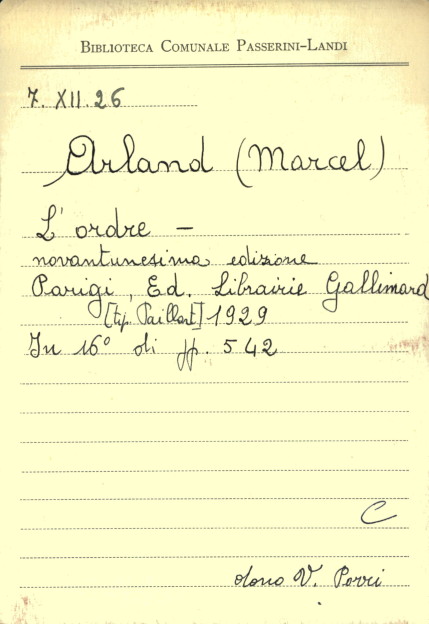 BIBLIOTECA COMUNALE PASSERINI-LANDI
7. XII. 26
Arland (Marcel)
L'ordre —
novantunesima edizione
Parigi, Ed. Librairie Gallimard
[tip. Paillart] 1929
In 16° di pp. 542
C
dono V. Porri